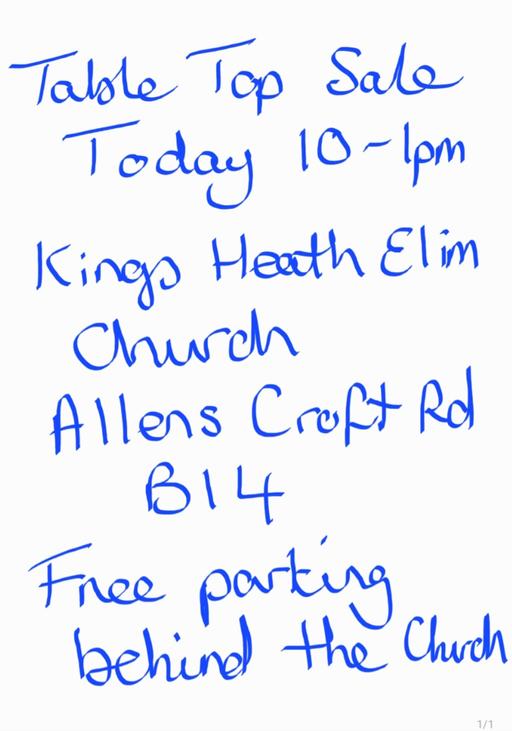 Table Top Sale
Today 10-1pm
Kings Heath Elim
Church
Allens Croft Rd
B14
Free parking
behind the Church
1/1